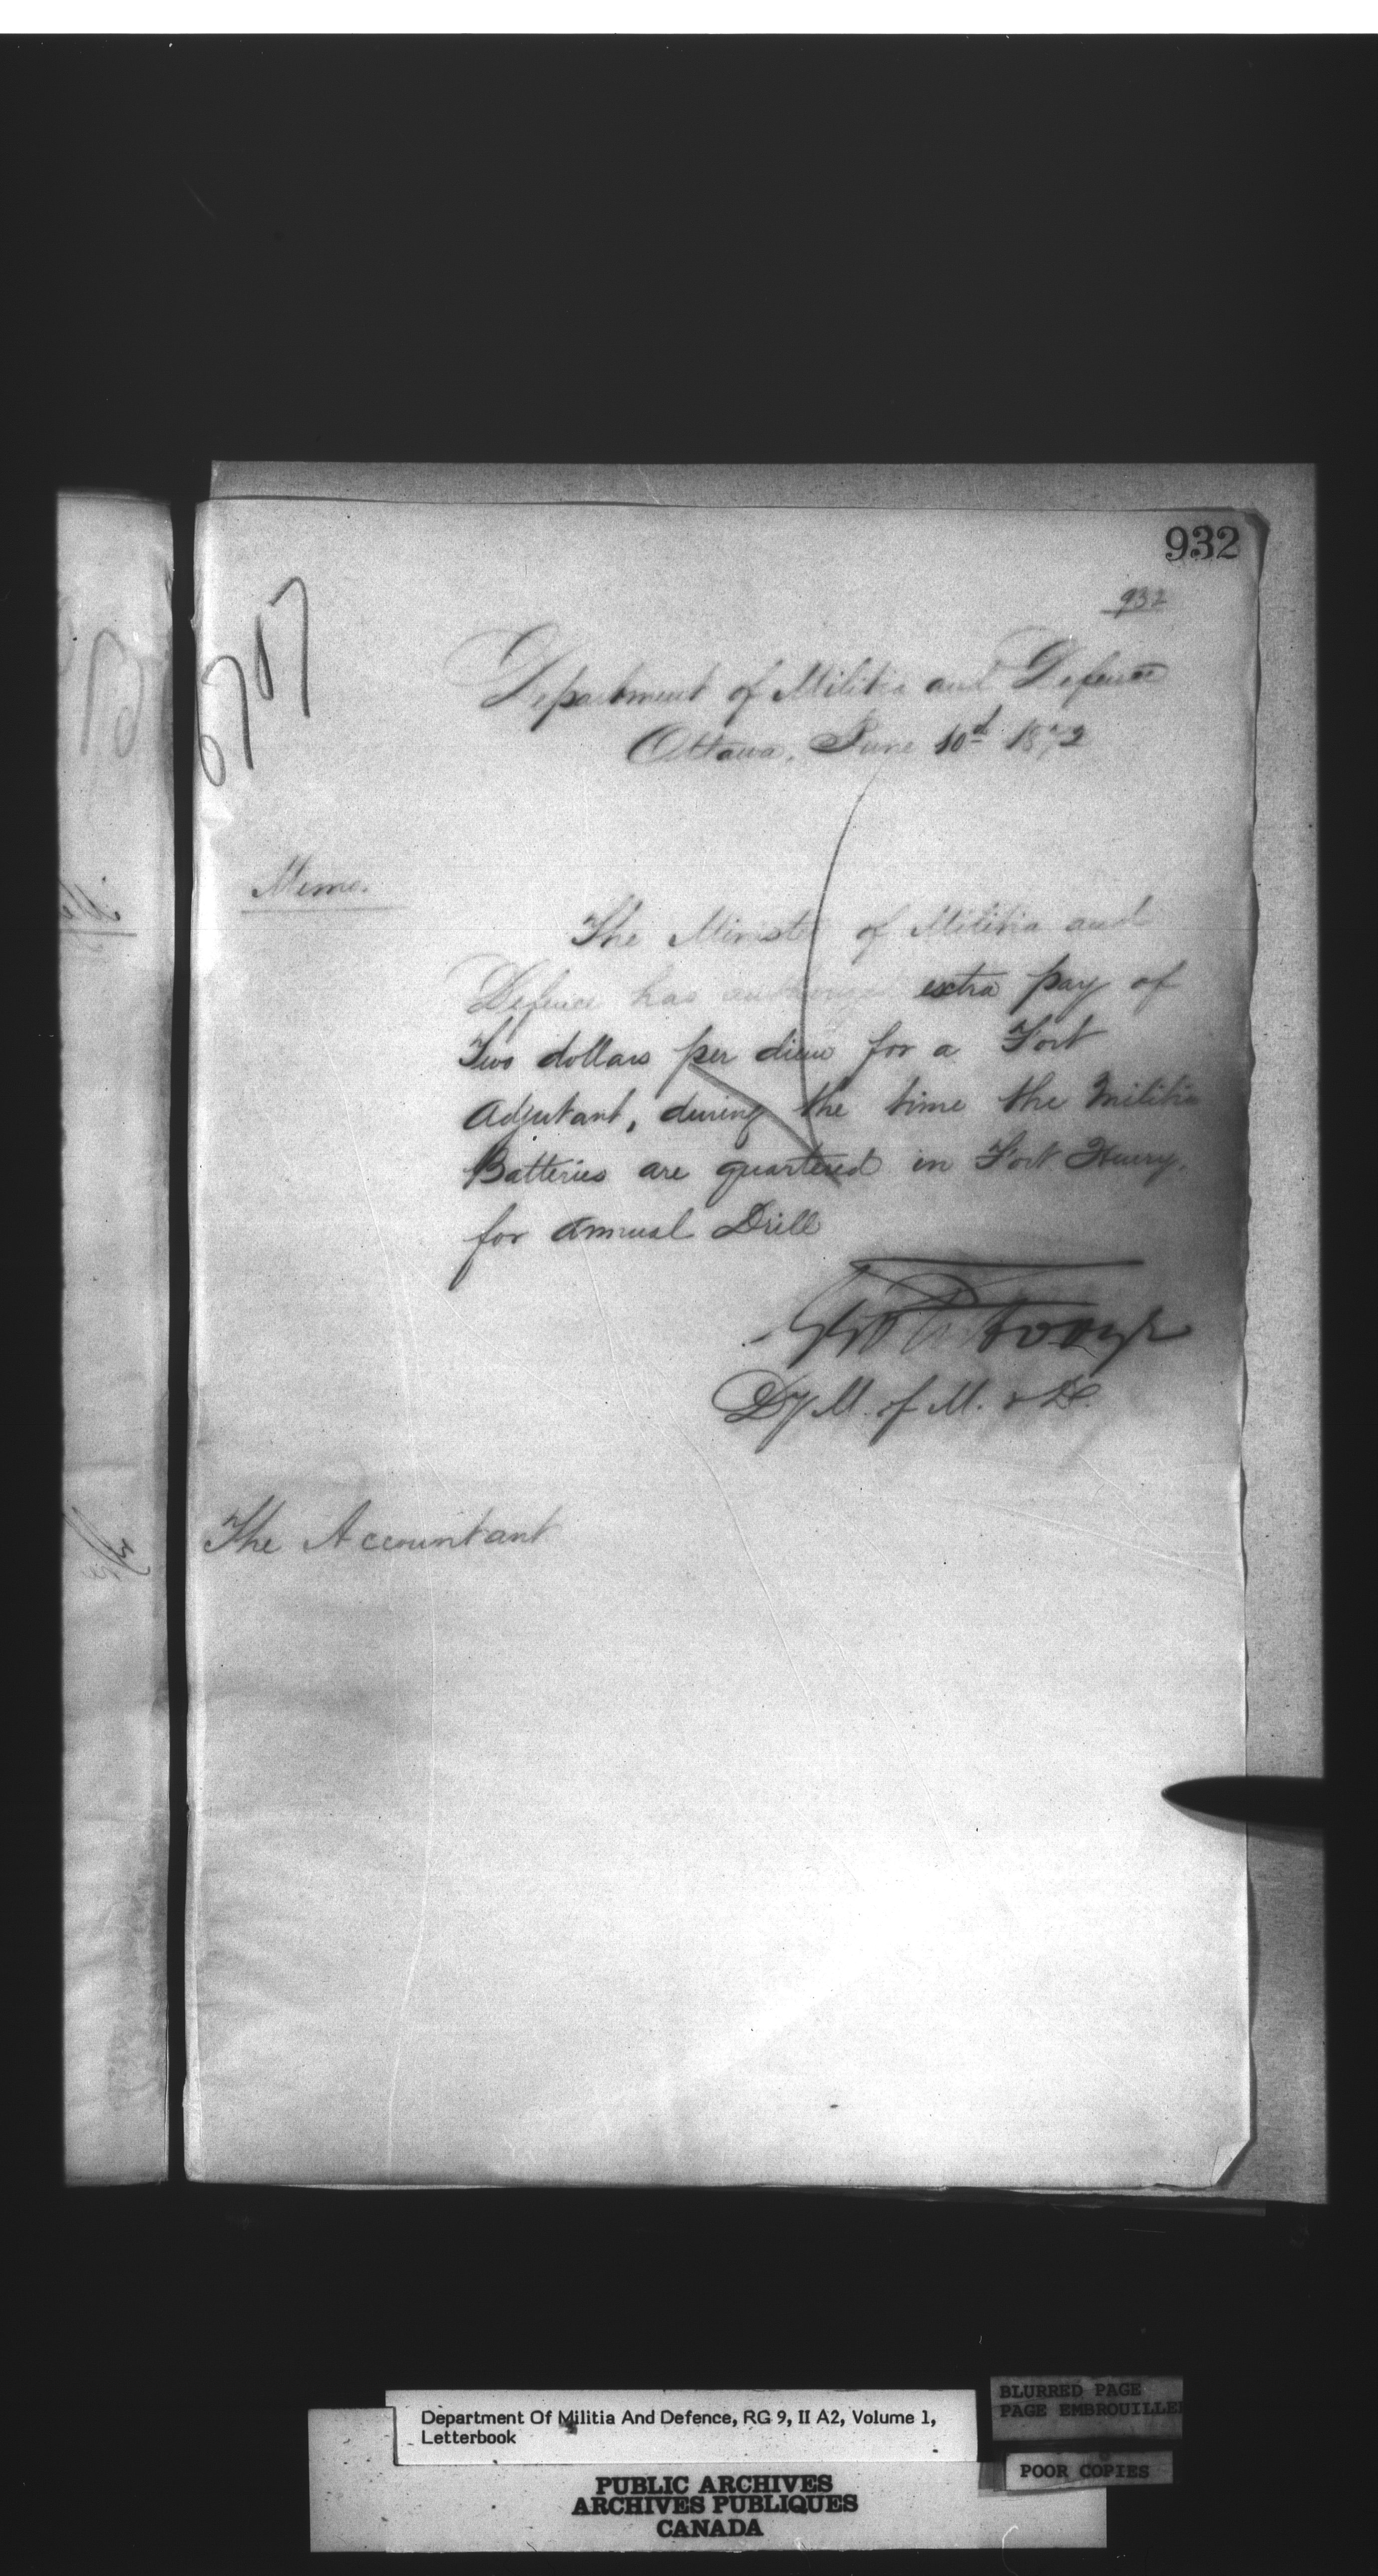 932
932
6707
Department of Militia and Defence
Ottawa, June 10d 1872
Memo.
The Minister of Militia and
Defence has authorized extra pay of
Two dollars per diem for a Fort
Adjutant, during the time the Militia
Batteries are quartered in Fort Henry,
for Annual Drill
Dy M. of M. & D.
The Accountant
Department Of Militia And Defence, RG 9, II A2, Volume 1,
Letterbook
BLURRED PAGE
PAGE EMBROUILLE
POOR COPIES
PUBLIC ARCHIVES
ARCHIVES PUBLIQUES
CANADA